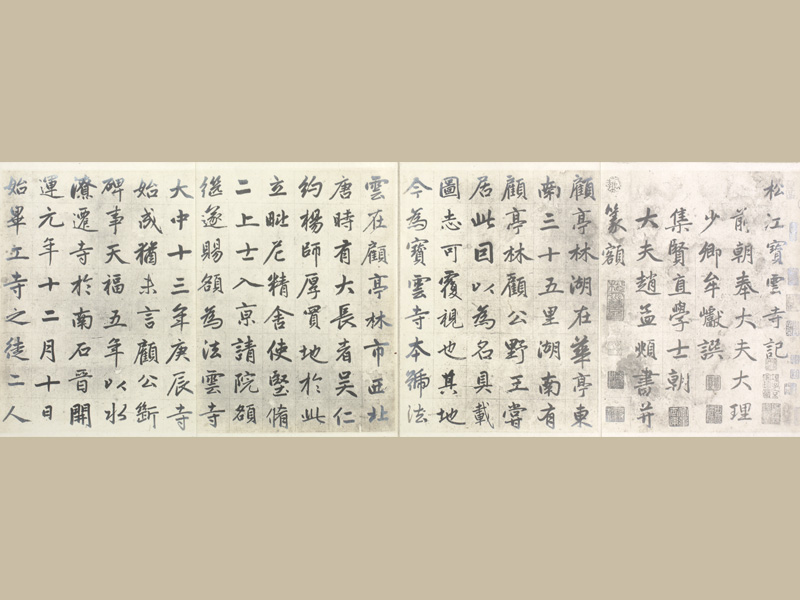 松江寶雲寺記
前朝奉大夫大理
少卿牟巘譔
集賢直學士朝
大夫趙孟頫書并
篆額
顧亭林湖在華亭東
南三十五里湖南有
顧亭林顧公野王嘗
居此因以為名具載
圖志可覆視也其地
今為寶雲寺本號法
雲在顧亭林市西北
唐時有大長者吳仁
約楊師厚買地於此
立毗尼精舍使堅脩
二上士入京請院額
繼遂賜額為法雲寺
大中十三年庚辰寺
始成猶未言顧公斷
碑事天福五年以水
潦遷寺於南石晉開
運元年十二月十日
始畢立寺之徒二人